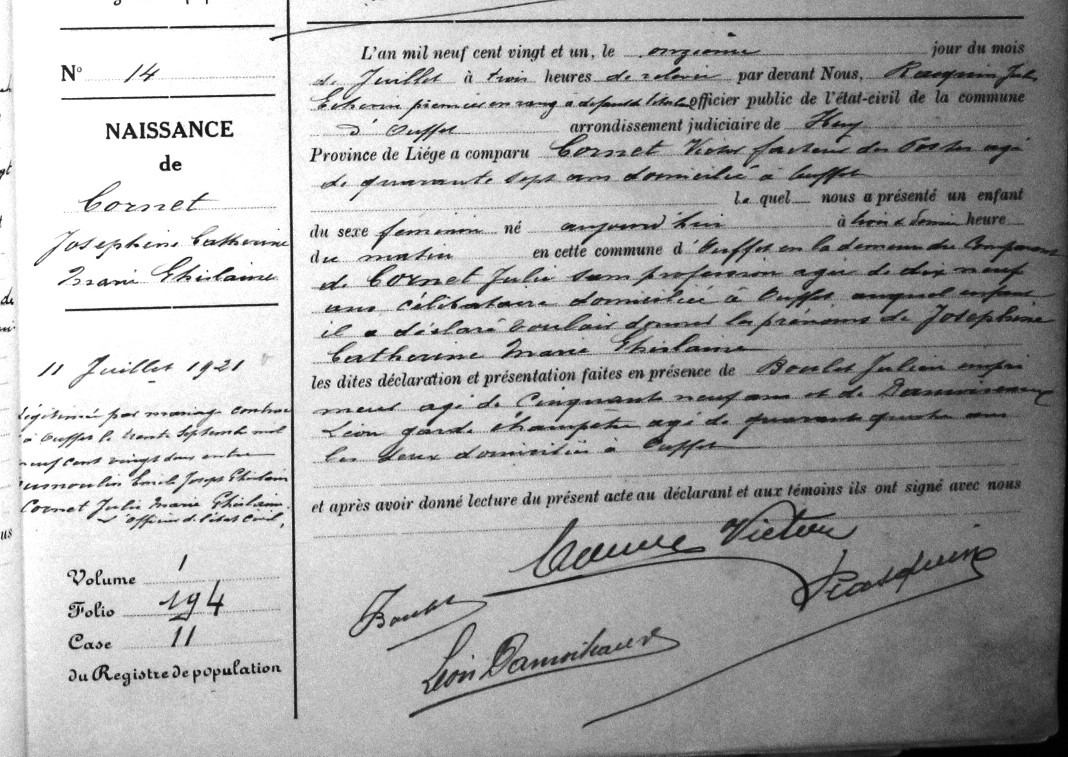 N° 14
NAISSANCE
de
Cornet
Josephine Catherine
Marie Ghislaine
11 Juillet 1921
Légitimé par mariage contrac
à Ouffet le trente Septembre mil
neuf cent vingt deux entre
Dumoulin Emile Joseph Ghislain
Cornet Julie Marie Ghislaine
L'officier de l'état Civil,
Volume 1
Folio 194
Case 11
du Registre de population
L'an mil neuf cent vingt et un, le onzième jour du mois
de Juillet à trois heures de relevée par devant Nous, Rasquin Jules
Echevin premier en rang à défaut officier public de l'état-civil de la commune
d' Ouffet arrondissement judiciaire de Huy
Province de Liége a comparu Cornet Victor facteur des Postes agé
de quarante sept ans domicilié à Ouffet
le quel nous a présenté un enfant
du sexe féminin né aujourd'hui à trois & demie heure
du matin en cette commune d' Ouffet en la demeure du Comparant
de Cornet Julie sans profession agée de dix neuf
ans célibataire domiciliée à Ouffet auquel enfant
il a déclaré vouloir donner les prénoms de Josephine
Catherine Marie Ghislaine
les dites déclaration et présentation faites en présence de Boulet Julien
agé de cinquante neuf ans et de Damoiseaux
Léon garde champêtre agé de quarante quatre ans
les deux domiciliés à Ouffet
et après avoir donné lecture du présent acte au déclarant et aux témoins ils ont signé avec nous
Victor
Rasquin
Boulet
Léon Damoiseaux